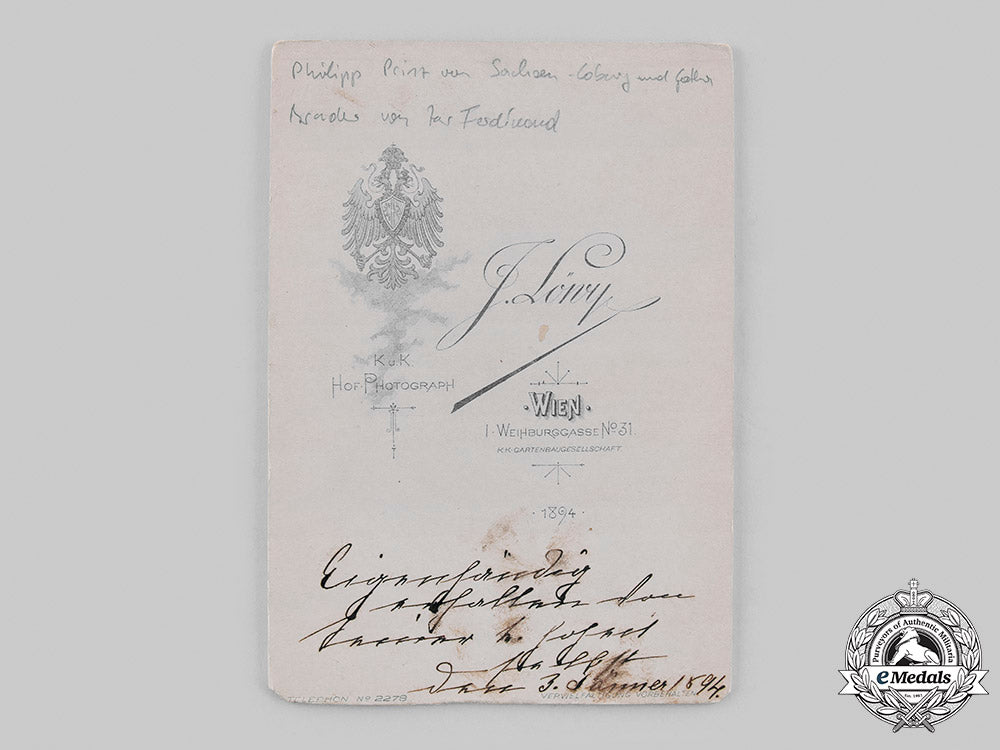 Philipp Prinz von Sachsen-Coburg und Gotha
Bruder von Zar Ferdinand
J. Löwy
K.u.K.
HOF-PHOTOGRAPH
·WIEN·
I·WEIHBURGGASSE No 31.
K.K.GARTENBAUGESELLSCHAFT
·1894·
Eigenhändig
erhalten von
Seiner k. Hoheit
selbst
den 3. Jänner 1894.
TELEPHON No 2278
VERVIELFÄLTIGUNG VORBEHALTEN
Purveyors of Authentic Militaria
eMedals